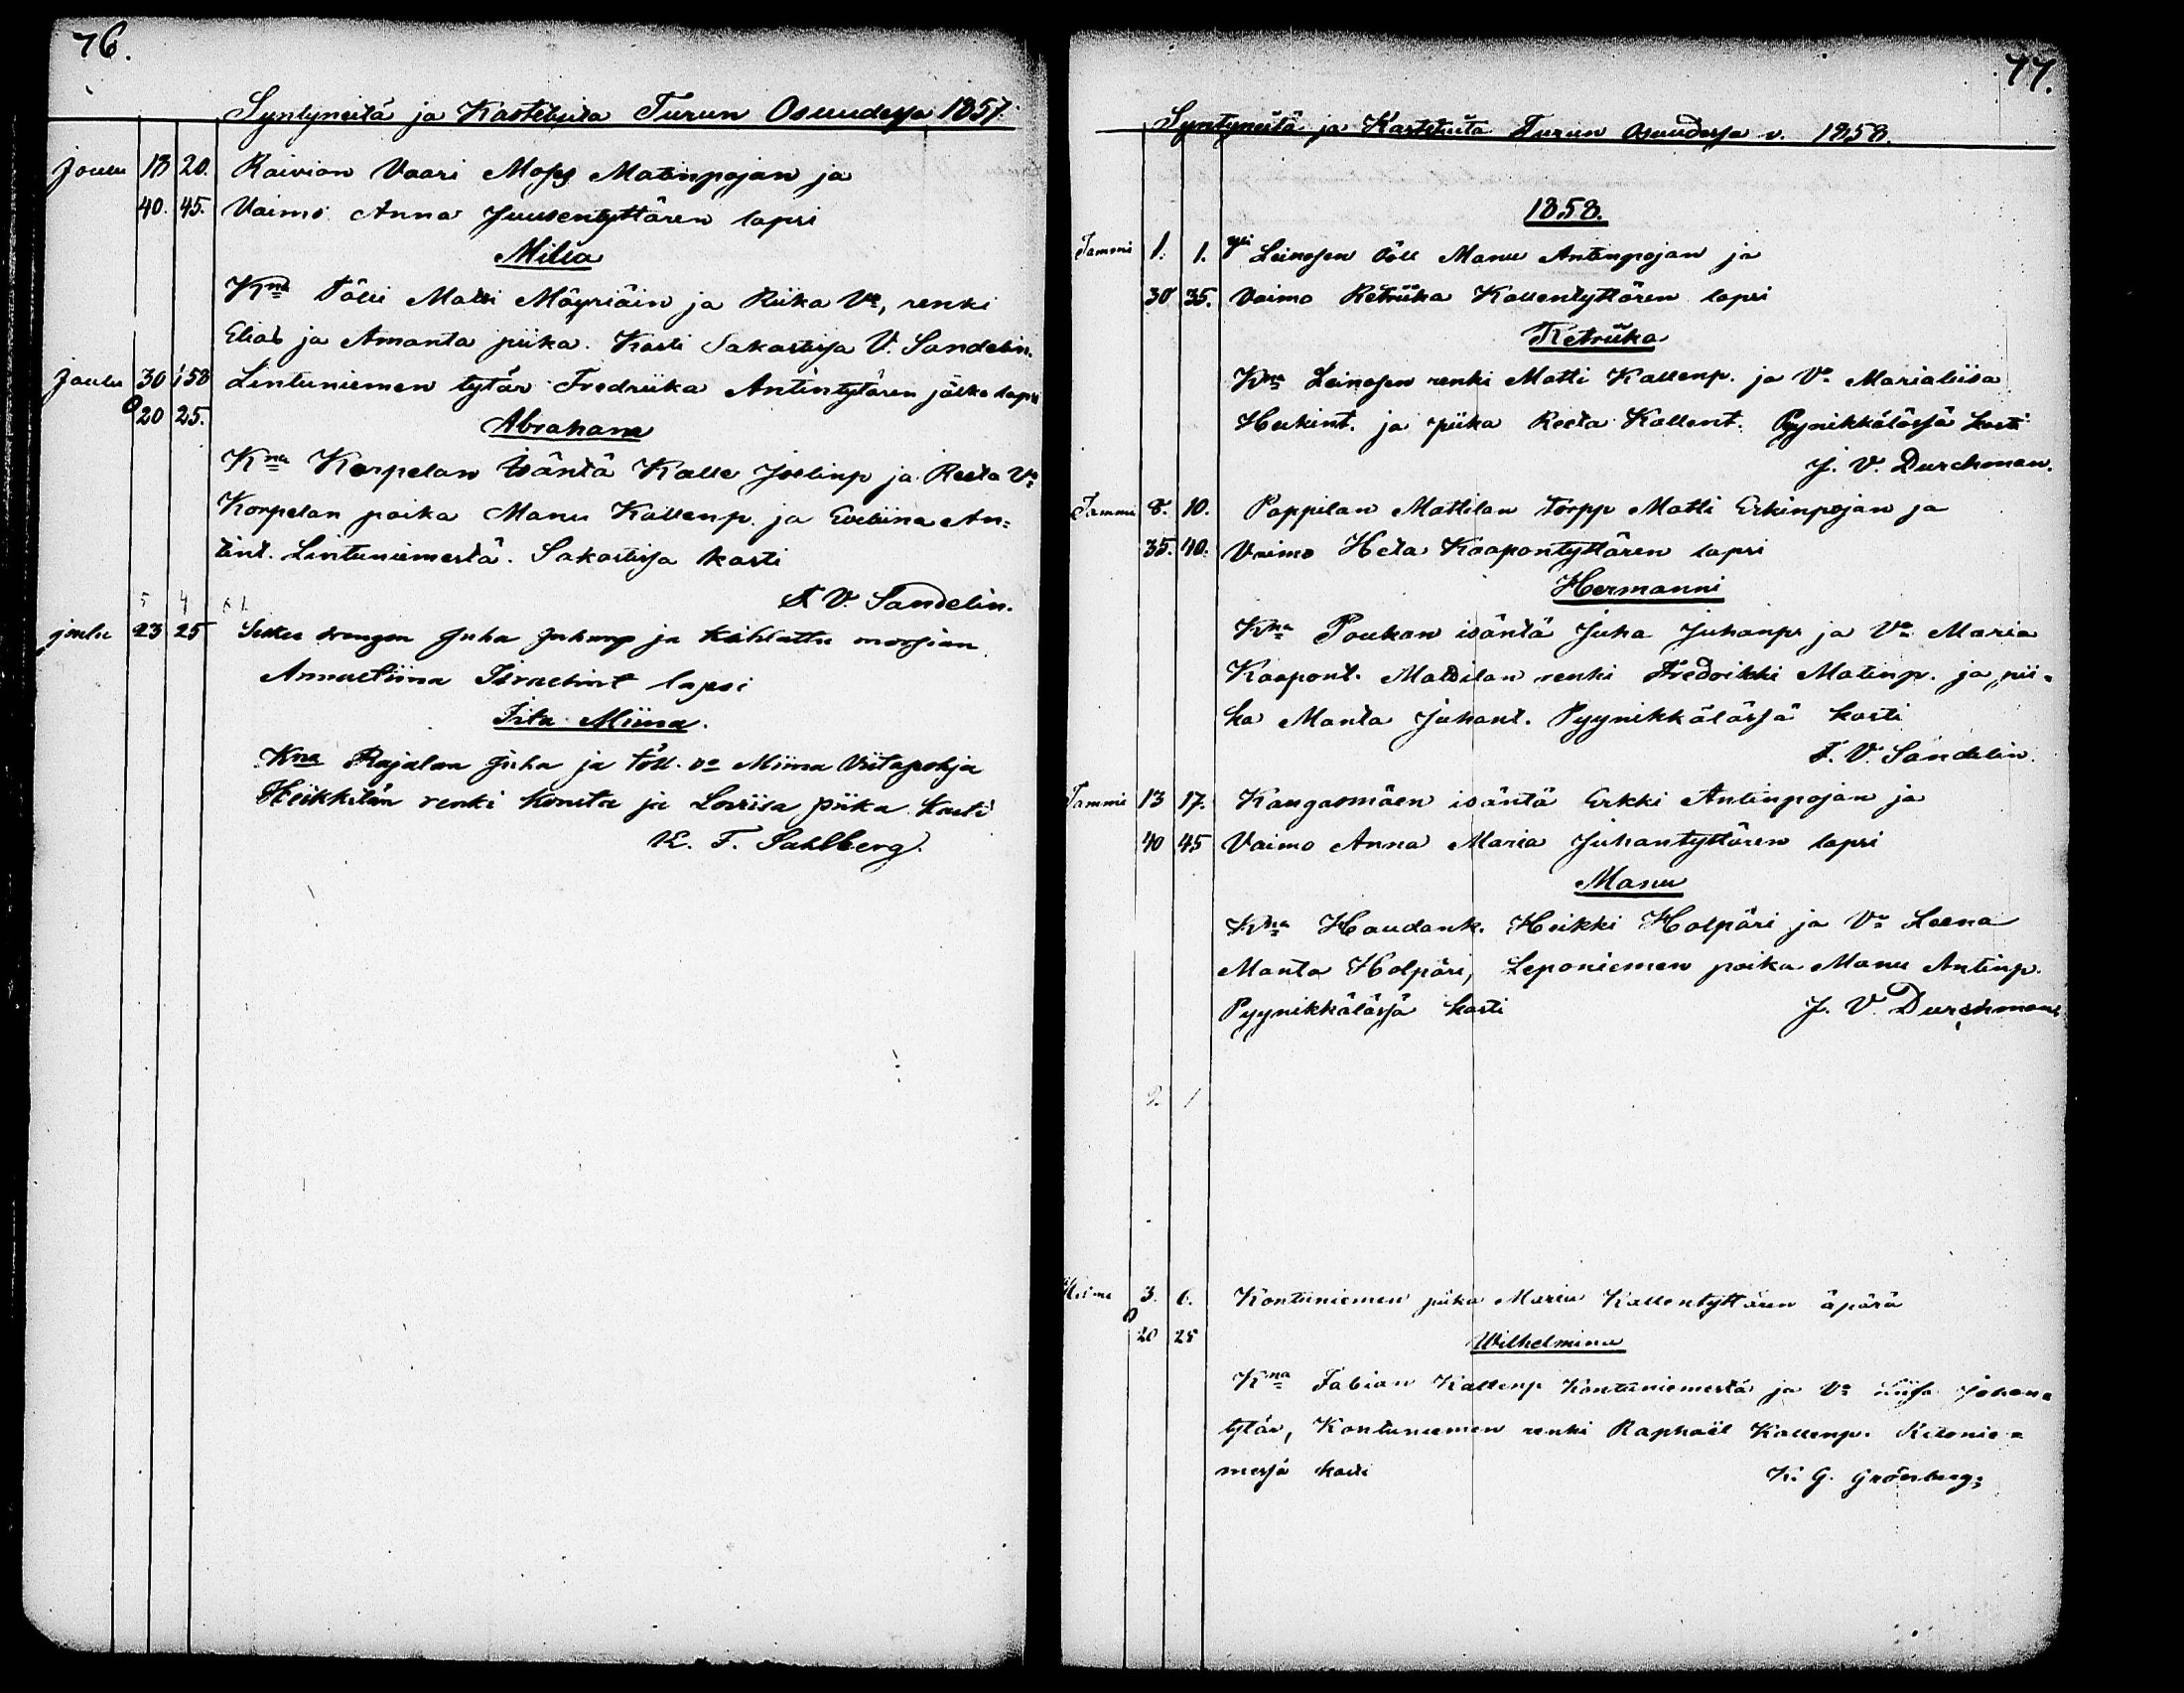 76.
Syntyneitä ja Kastetuita Turun Osuudessa 1857.
Joulu 18 20. Raivion Vaari Moses Matinpojan ja
40. 45. Vaimo Anna Juusentyttären lapsi
Milia
Kna Tölli Matti Mäyriäin ja Riika Vo, renki
Elias ja Amanta piika. Kasti Sakastissa V. Sandelin.
Joulu 30 1 58 Lintuniemen tytär Fredriika Antintytären jälke lapsi
20 25.
Abraham
Kna Korpelan Isäntä Kalle Joelinp ja Reeta Vo
Korpelan poika Manu Kallenp. ja Eveliina An=
tint. Lintuniemestä. Sakastissa kasti
F. V. Sandelin.
5 4
joulu 23 25 drengen Juha Juhanp ja kihlattu morsian
Annastiina Israelint lapsi
Iita Miina.
Kna Rajalan Juha ja töll. vo Miina Viitapohja
Heikkilän renki Konsta ja Loviisa piika kasti
K. F. Sahlberg.
77.
Syntyneitä ja Kastetuita Turun Osuudessa v. 1858.
1858.
Tammi 1. 1. Leinosen töll Manu Antinpojan ja
30 35. Vaimo Retriika Kallentyttären lapsi
Retriika
Kna Leinosen renki Matti Kallenp. ja Vo Marialiisa
Heikint. ja piika Reeta Kallent. Pyynikkälässä kasti
J. V. Durchman.
Tammi 8. 10. Pappilan Mattilan torpp Matti Erkinpojan ja
35. 40. Vaimo Heta Kaapontyttären lapsi
Hermanni
Kna Poukan isäntä Juha Juhanp. ja Vo Maria
Kaapont. Mattilan renki Fredrikki Matinp. ja pii=
ka Manta Juhant. Pyynikkälässä kasti
F. V. Sandelin.
Tammi 13 17. Kangasmäen isäntä Erkki Antinpojan ja
40 45 Vaimo Anna Maria Juhantyttären lapsi
Manu
Kna Haudank. Heikki Holpäri ja Vo Leena
Manta Holpäri, Leponiemen poika Manu Antinp.
Pyynikkälässä kasti J. V. Durchman
Helmi 3. 6. Kontuniemen piika Maria Kallentyttären äpärä
20 25
Wilhelmina
Kna Fabian Kallenp Kontuniemestä ja Vo Liisa Johan=
tytär, Kontuniemen renki Raphaël Kallenp. Kiteenie=
messä kasti K. G. Grönberg.